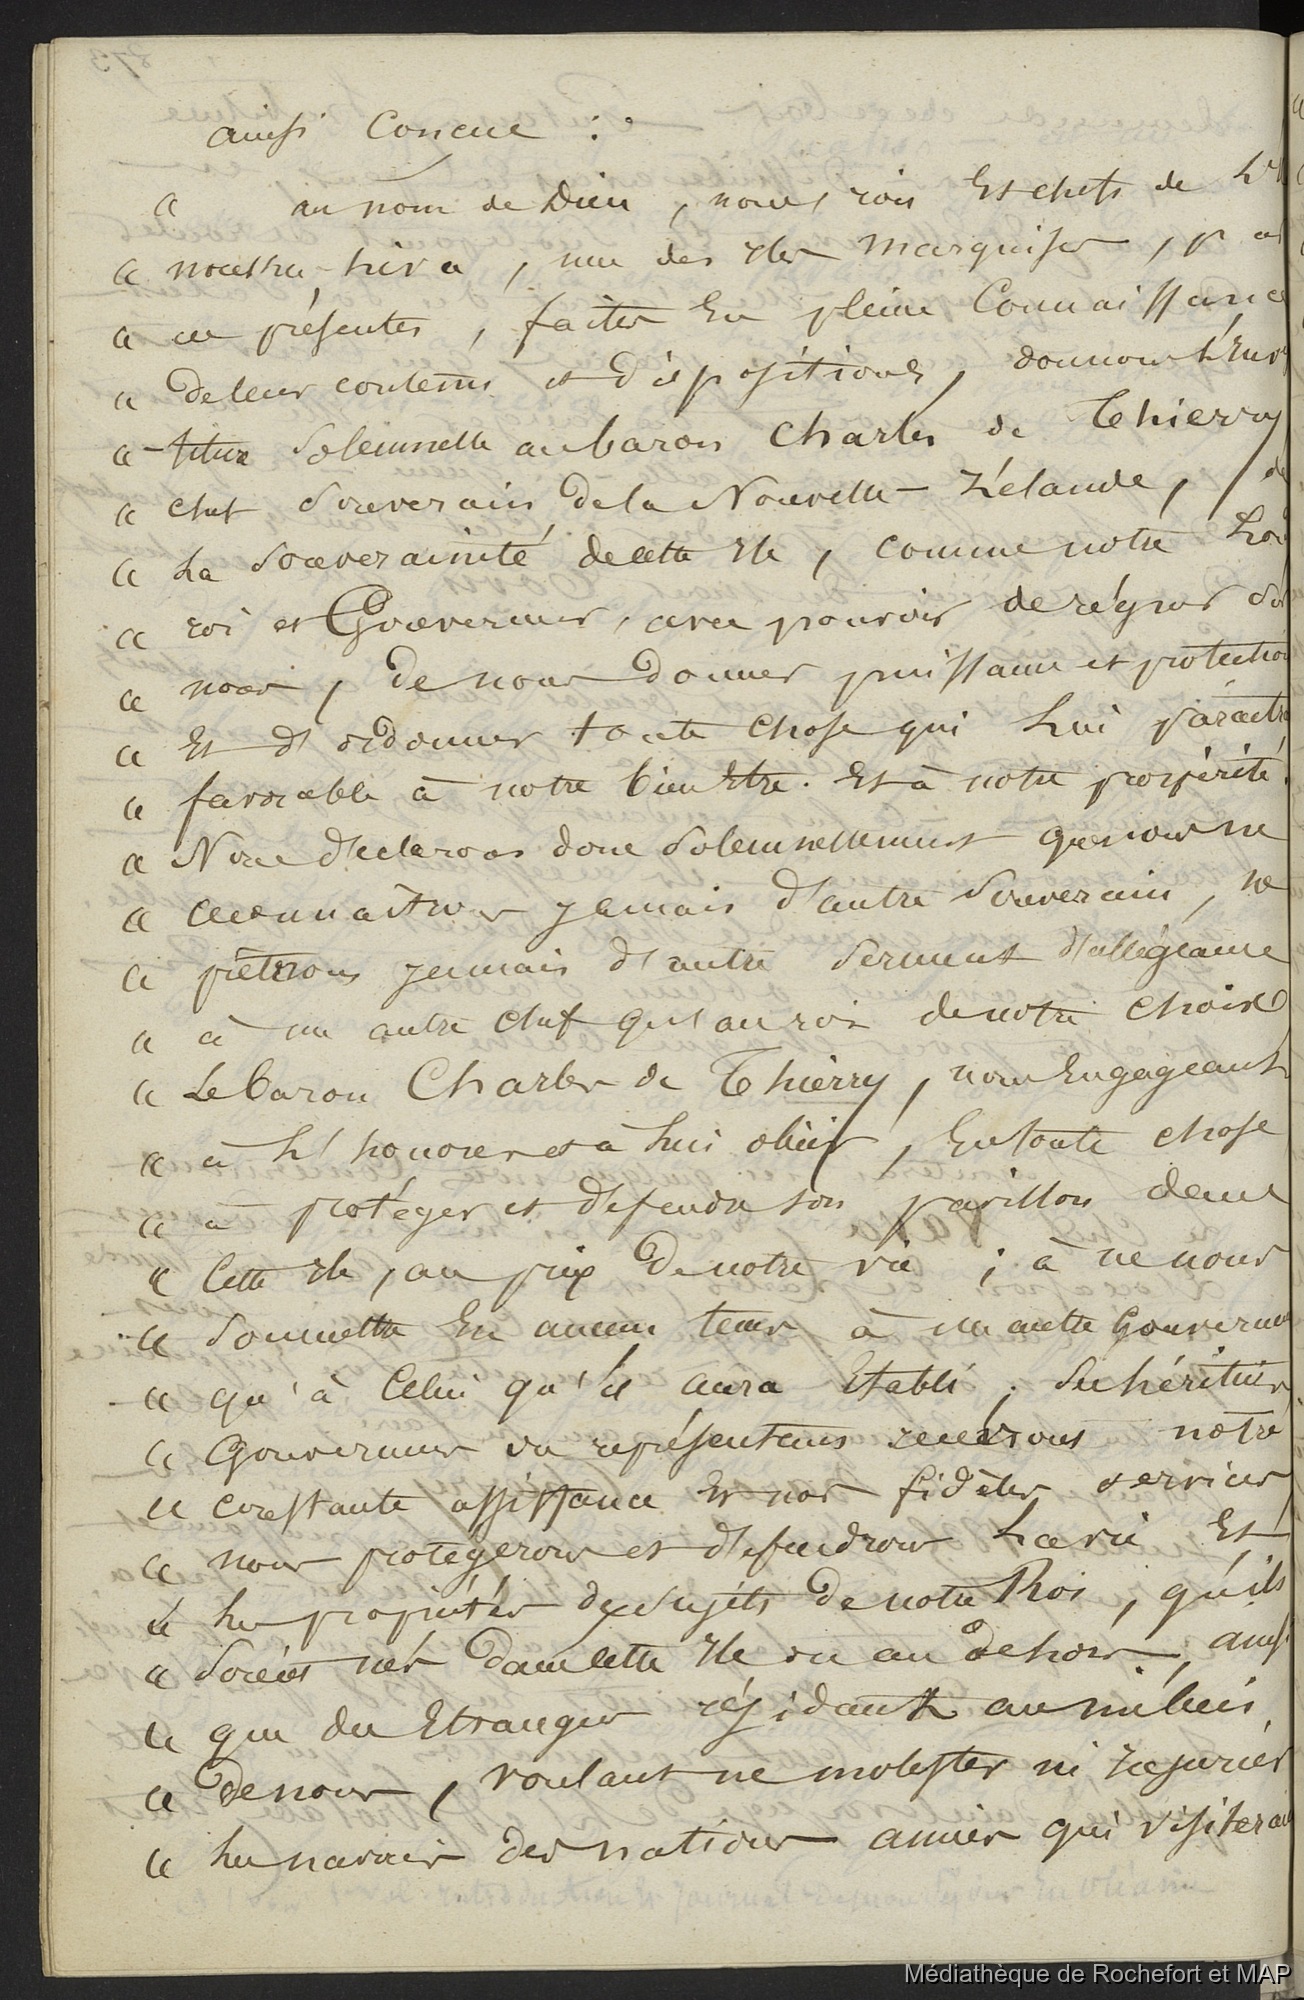 ainsi concue :
« au nom de Dieu, nous rois Et chefs de L'
« nouka-hiva, une des Iles Marquises, p
« ces présentes, faites En pleine Connaissance
« de leur contenus et dispositions, donnons
« titure Solennelle au baron Charles de Thierry
« chef Souverain de la Nouvelle-Zélande, de
« La Souveraineté de cette Ile, comme notre
« roi et Gouverneur, avec pouvoir de régner
« nous, de nous donner puissance et protection
« Et d'ordonner toute chose qui Lui paraitra
« favorable à notre bien Etre. Et à notre prospérité.
« Nous déclarons donc Solennellement que nous ne
« reconnaîtrons jamais d'autre Souverain, ne
« prêterons jamais d'autre Serment d'allégeance
« à un autre chef qu'au roi de notre choix
« Le baron Charles de Thierry, nous Engageant
« à L'honorer et à Lui obéir, En toute chose
« à protéger et défendre son pavillon dans
« Cette Ile, au prix de notre vie ; à ne nous
« Soumettre En aucun tems à un autre Gouverneur
« qu'à Celui qu'il aura Etabli ; Ses héritiers
« Gouverneurs ou représentans recevrons notre
« constante assistance Et nos fidèles services
« nous protégerons et défendrons La vie Et
« Les propriétés des sujets de notre Roi, qu'ils
« Soient nés dans cette Ile ou au dehors, ainsi
« que des Etrangers résidant au milieu
« de nous, voulant ne molester ni injurier
« Les navires des nations amies qui visiterai
Médiathèque de Rochefort et MAP